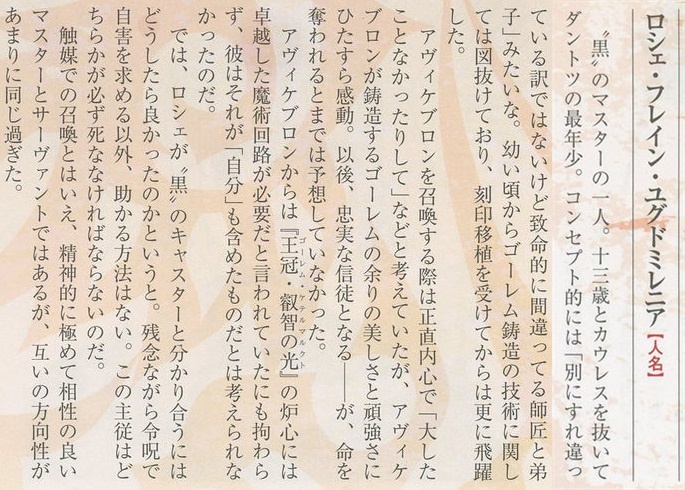 ロシェ・フレイン・ユグドミレニア【人名】
〝黒〟のマスターの一人。十三歳とカウレスを抜いて
ダントツの最年少。コンセプト的には「別にすれ違っ
ている訳ではないけど致命的に間違ってる師匠と弟
子」みたいな。幼い頃からゴーレム鋳造の技術に関し
ては図抜けており、刻印移植を受けてからは更に飛躍
した。
アヴィケブロンを召喚する際は正直内心で「大した
ことなかったりして」などと考えていたが、アヴィケ
ブロンが鋳造するゴーレムの余りの美しさと頑強さに
ひたすら感動。以後、忠実な信徒となる──が、命を
奪われるとまでは予想していなかった。
アヴィケブロンからは『王冠・叡智の光』の炉心には
ゴーレム・ケテルマルクト
卓越した魔術回路が必要だと言われていたにも拘わら
ず、彼はそれが「自分」も含めたものだとは考えられな
かったのだ。
では、ロシェが〝黒〟のキャスターと分かり合うには
どうしたら良かったのかというと。残念ながら令呪で
自害を求める以外、助かる方法はない。この主従はど
ちらかが必ず死ななければならないのだ。
触媒での召喚とはいえ、精神的に極めて相性の良い
マスターとサーヴァントではあるが、互いの方向性が
あまりに同じ過ぎた。